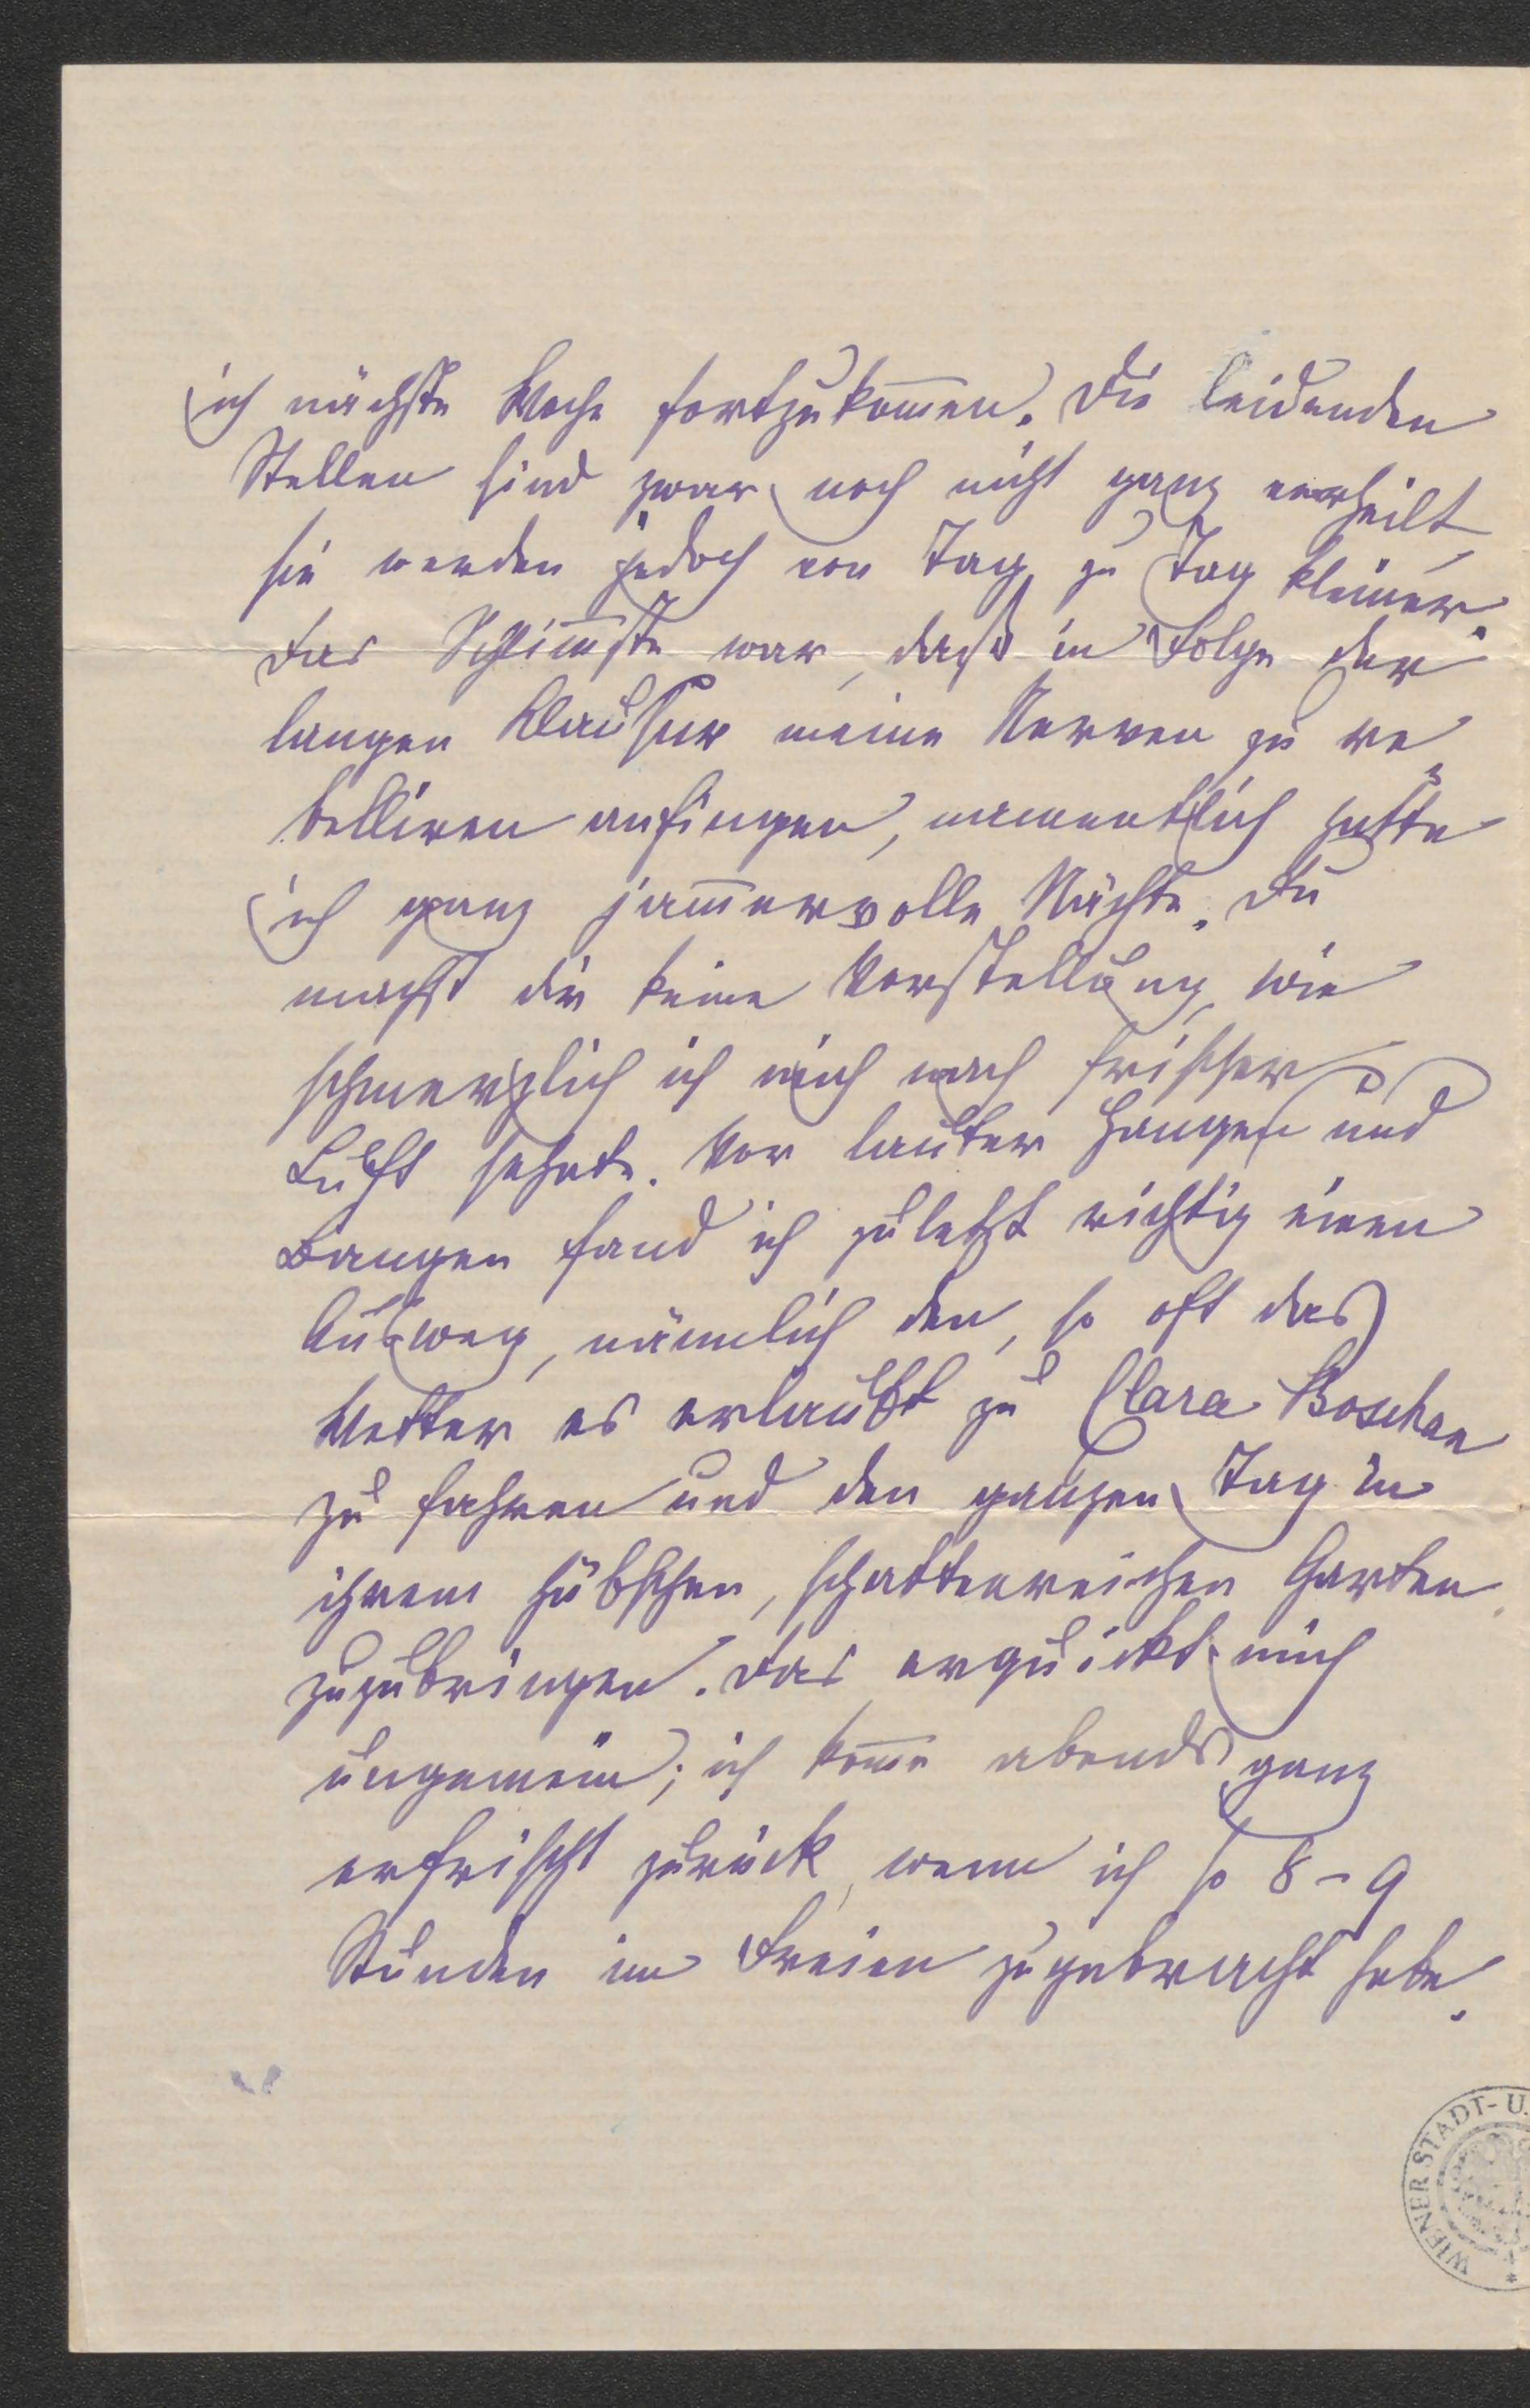 ich nächste Woche fortzukom̅en. Die leidenden
Stellen sind zwar noch nicht ganz verheilt
sie werden jedoch von Tag zu Tag kleiner.
Das Schlim̅ste war, daß in Folge der
langen Clausur meine Nerven zu re
belliren anfingen, namentlich hatte
ich ganz jam̅ervolle Nächte. Du
machst dir keine Vorstellung, wie
schmerzlich ich mich nach frischer
Luft sehnte. Vor lauter Hangen und
Bangen fand ich zuletzt richtig einen
Ausweg, nämlich den, so oft das
Wetter es erlaubt zu Clara Boschan
zu fahren und den ganzen Tag in
ihrem hübschen, schattenreichen Garten
zuzubringen. Das erquickt mich
ungemein; ich kom̅e abends ganz
erfrischt zurück, wenn ich so 8-9
Stunden im Freien zugebracht habe.
WIENER STADT- U.